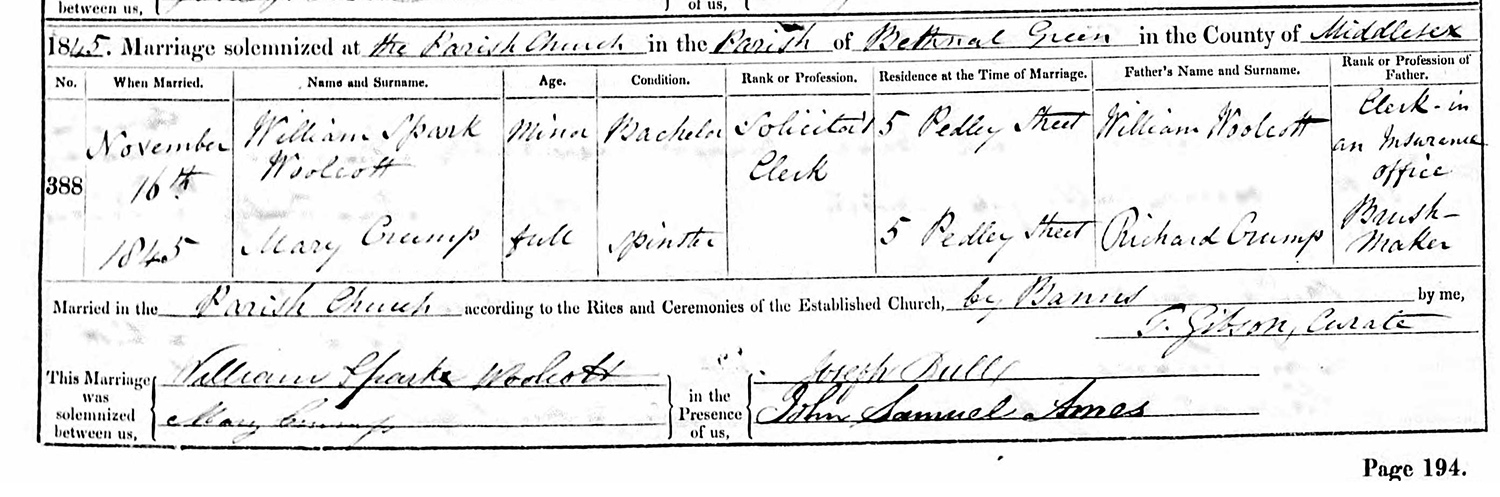 between us,
of us,
1845. Marriage solemnized at the Parish Church in the Parish of Bethnal Green in the County of Middlesex
No. When Married. Name and Surname. Age. Condition. Rank or Profession. Residence at the Time of Marriage. Father's Name and Surname. Rank or Profession of Father.
388
November
16th
1845
William Spark
Woolcott
Minor
Bachelor
Solicitor's
Clerk
5 Pedley Street
William Woolcott
Clerk - in
an Insurance
office
Mary Crump
full
Spinster
5 Pedley Street
Richard Crump
Brush-
Maker
Married in the Parish Church according to the Rites and Ceremonies of the Established Church, by Banns by me,
T. Gibson, Curate
This Marriage
was
solemnized
between us,
William Sparke Woolcott
Mary Crump
in the
Presence
of us,
Joseph
John Samuel Ames
Page 194.